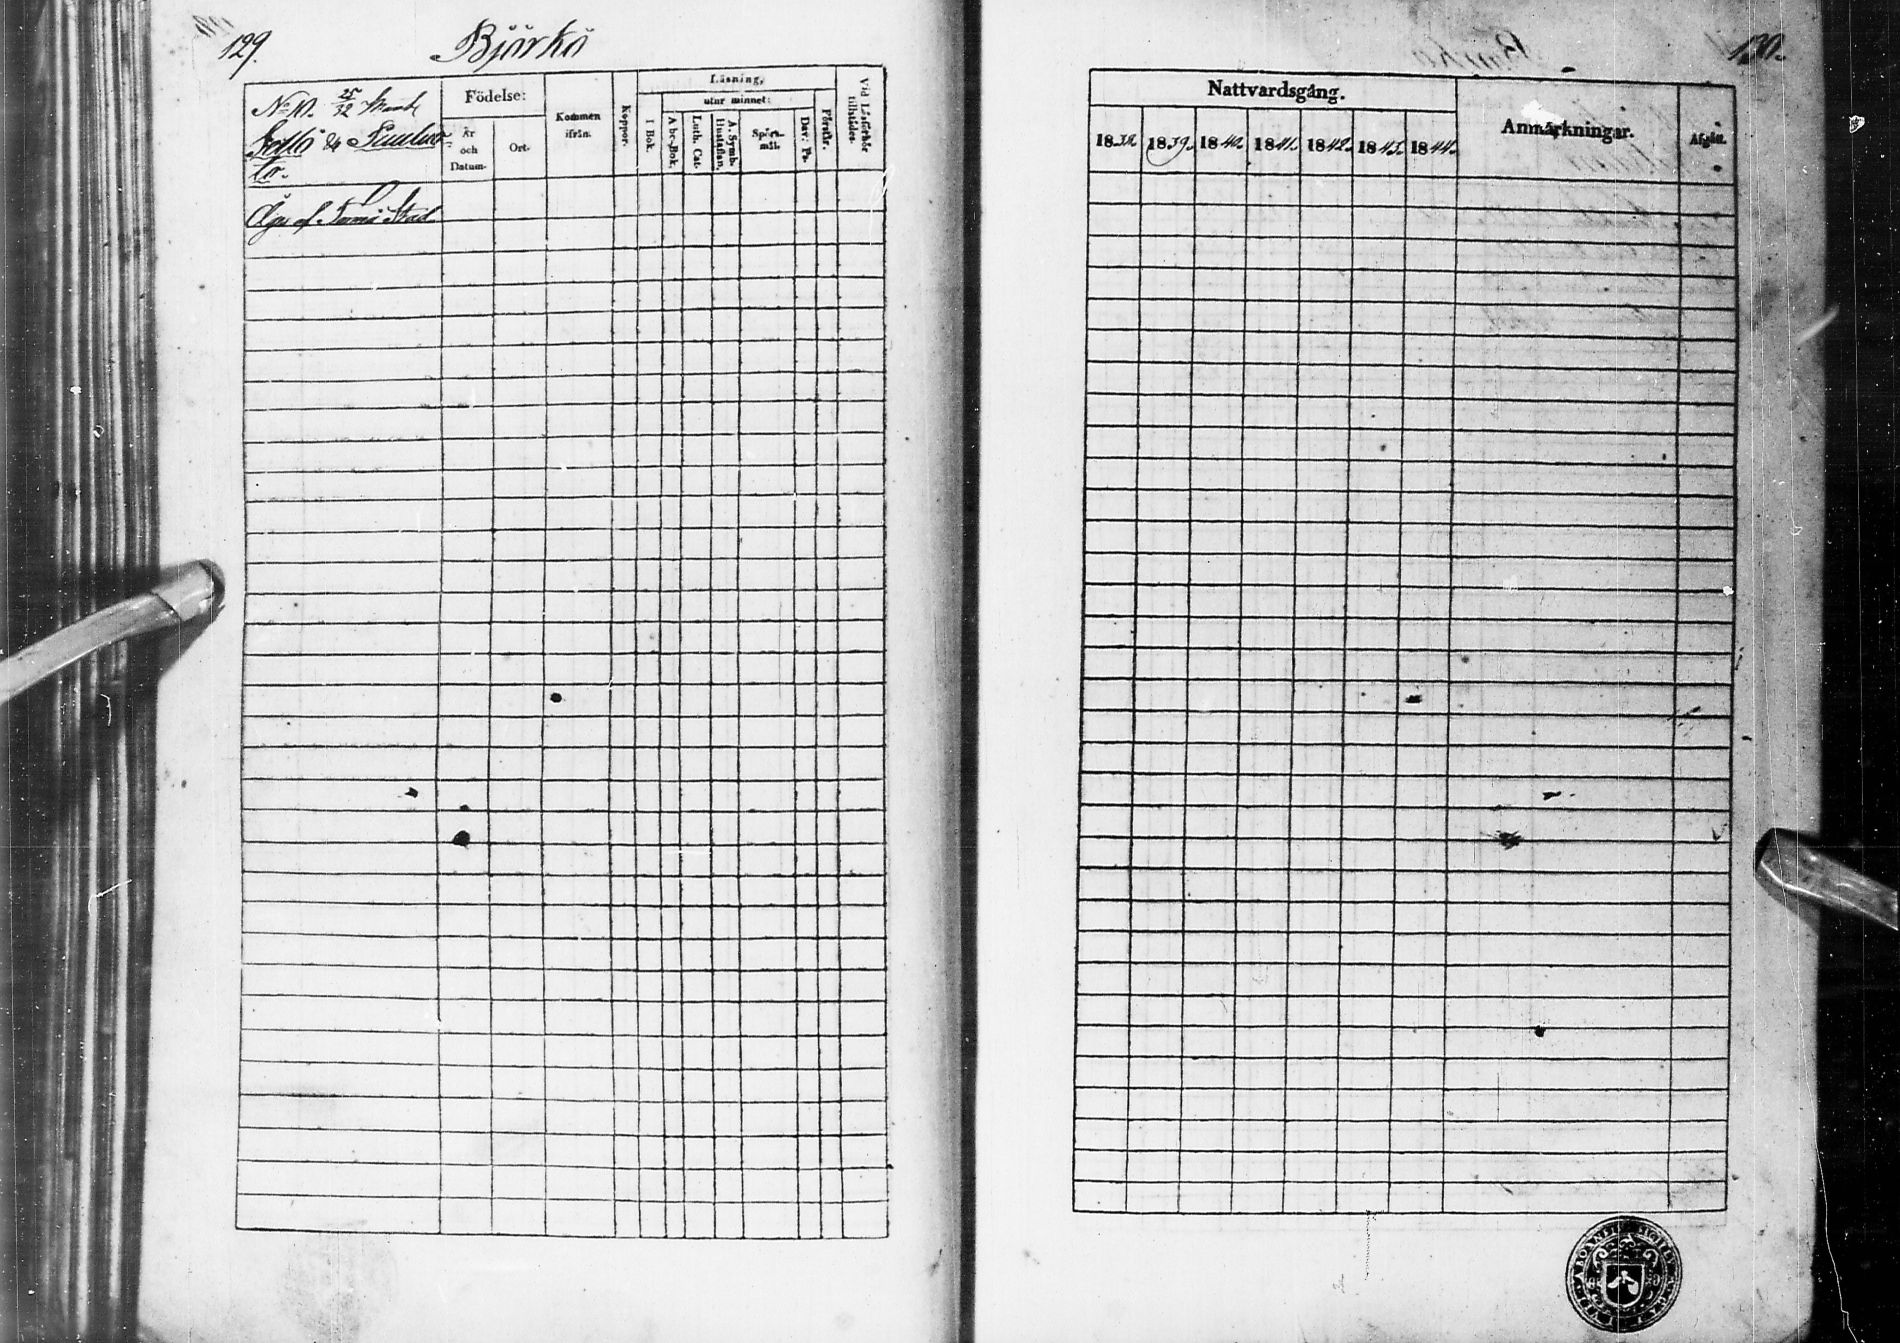 129.
Björkö
No 10. 25/32 Mant.
Sattö &
Äges af Stad
Födelse:
År
och
Datum.
Ort.
Kommen
ifrån.
Koppor.
Läsning,
utur minnet:
I Bok.
Abc-Bok.
Luth. Cat.
A. Symb.
Hustaflan.
Spörs-
mål.
Dav. Ps.
Förstår.
Vid Läsförhör
tillstädes.
130.
Nattvardsgång.
1838. 1839. 1840. 1841. 1842. 1843. 1844.
Anmärkningar.
Afgått.